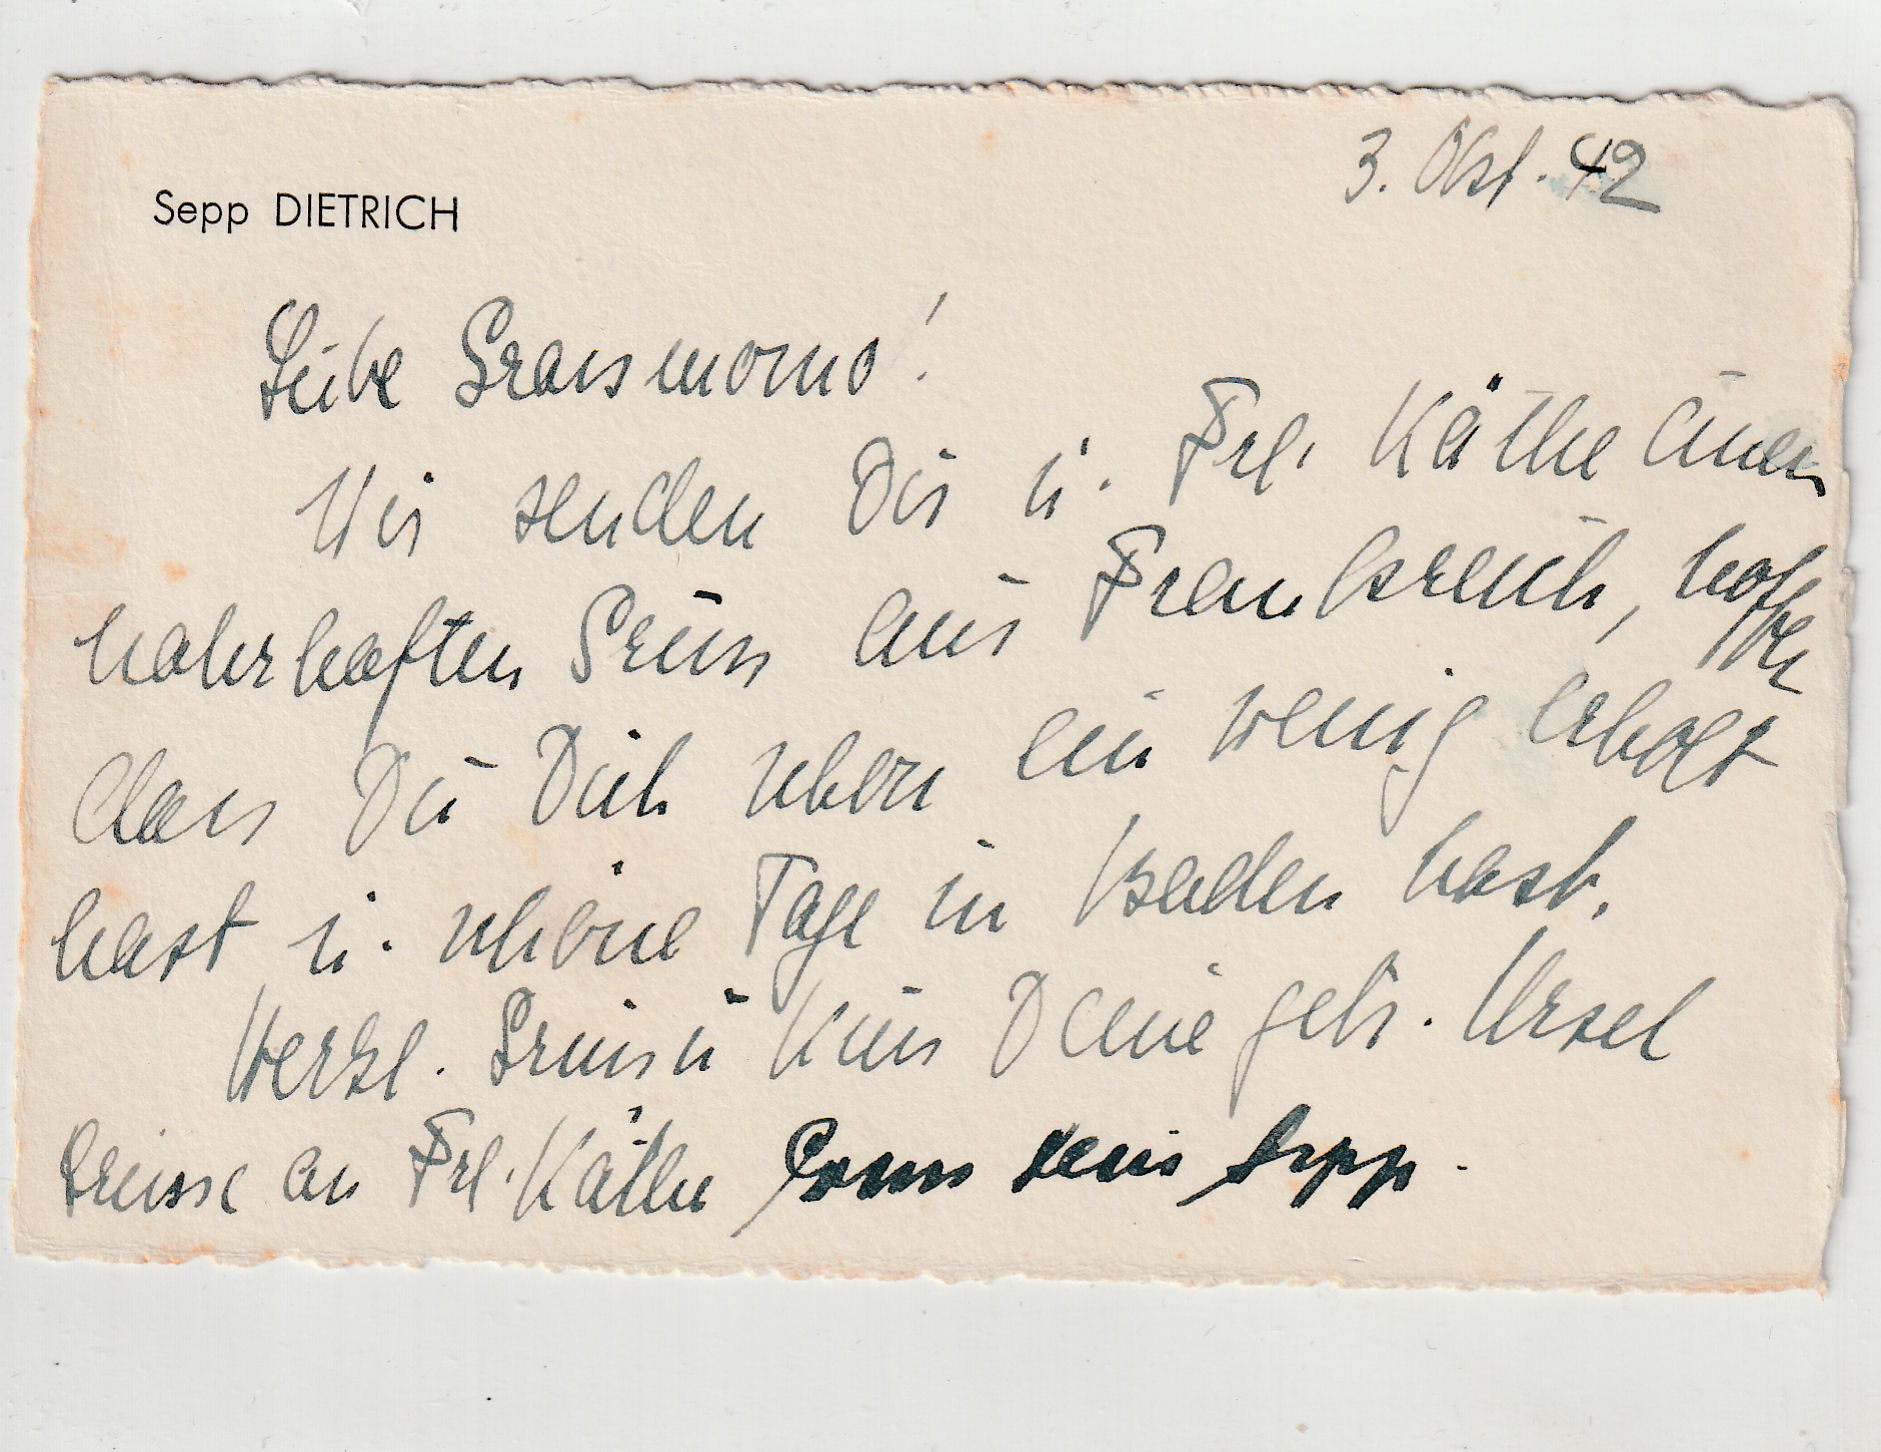 3. Okt. 42
Sepp DIETRICH
Liebe Grossmama!
Wir senden Dir u. Frl. Käthe einen
nahrhaften Gruss aus Frankreich, hoffen
dass Du Dich schon ein wenig erholt
hast u. schöne Tage in Baden hast.
Herzl. Gruss u Kuss Deine gel. Ursel
Grüsse an Frl. Käthe dein Sepp.